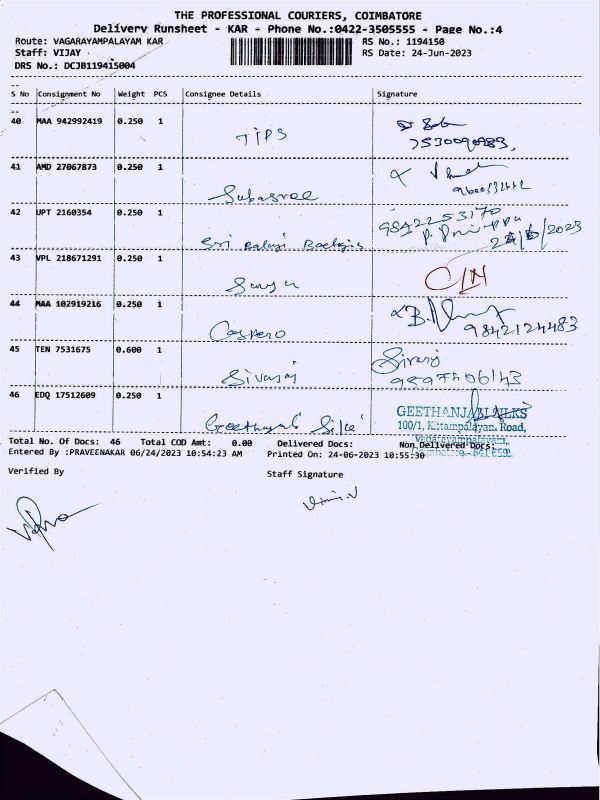 THE PROFESSIONAL COURIERS, COIMBATORE
Delivery Runsheet - KAR - Phone No.:0422-3505555 - Page No.:4
Route: VAGARAYAMPALAYAM KAR RS No.: 1194150
Staff: VIJAY - RS Date: 24-Jun-2023
DRS No.: DCJB119415004
S No Consignment No Weight PCS Consignee Details Signature
40 MAA 942992419 0.250 1
TIPS
41 AMD 27067873 0.250 1
Subasree
42 UPT 2160354 0.250 1 9842253170
Sri Balaji 24/6/2023
43 VPL 218671291 0.250 1
Surya
44 MAA 102919216 0.250 1
9842124483
45 TEN 7531675 0.600 1 Sivaraj
Sivaraj
46 EDQ 17512609 0.250 1
GEETHANJALI SILKS
100/1, Kittampalayan. Road,
Vagarayampalayam,
Total No. Of Docs: 46 Total COD Amt: 0.00 Delivered Docs: Non Delivered Docs:
Entered By :PRAVEENAKAR 06/24/2023 10:54:23 AM Printed On: 24-06-2023 10:55:30
Verified By Staff Signature